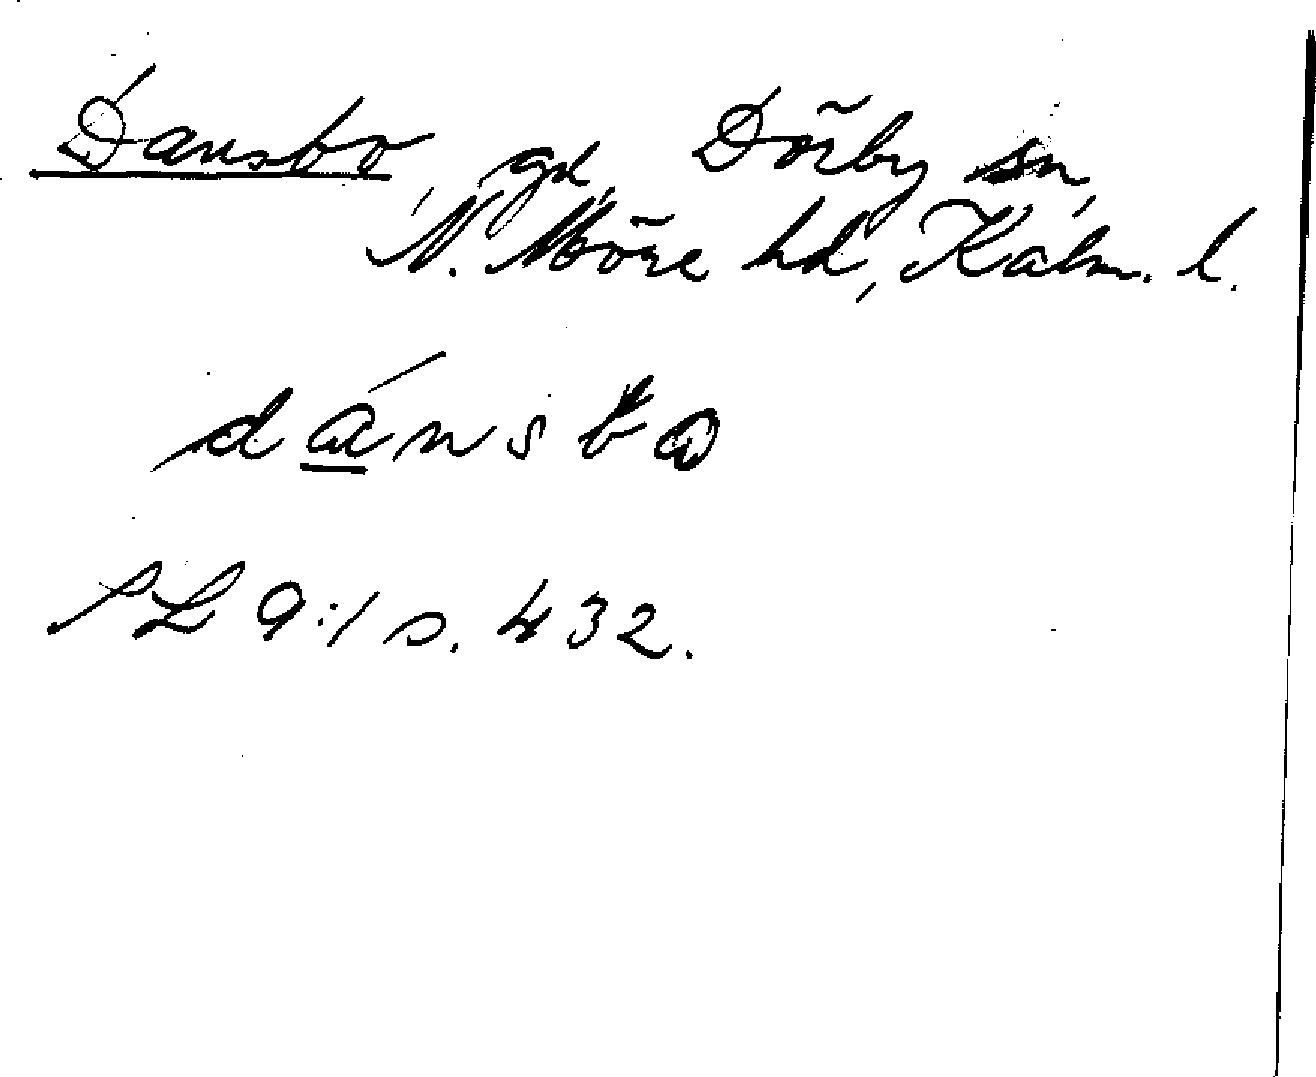 Dansbo, gd, Dörby sn,
N. Möre hd, Kalm. l.
dánsbω
SL 9:1 s. 432.